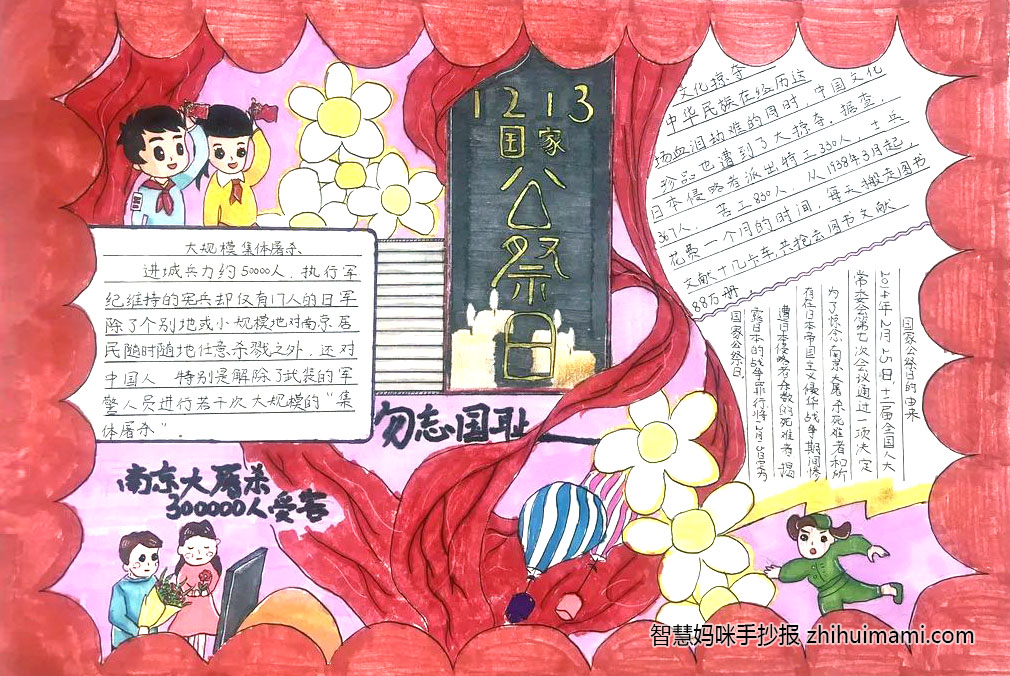 1213
国家
公
祭
日
大规模集体屠杀
进城兵力约50000人，执行军
纪维持的宪兵却仅有17人的日军
除了个别地或小规模地对南京居
民随时随地任意杀戮之外，还对
中国人，特别是解除了武装的军
警人员进行若干次大规模的“集
体屠杀”。
勿忘国耻
南京大屠杀
300000人受害
文化掠夺
中华民族在经历这
场血泪劫难的同时，中国文化
珍品也遭到了大掠夺。据查，
日本侵略者派出特工330人、士兵
367人、苦工830人，从1938年3月起，
花费一个月的时间，每天搬走图书
文献十几卡车，共抢去图书文献
88万册。
国家公祭日的由来
2014年2月25日，十二届全国人大
常委会第七次会议通过一项决定
为了悼念南京大屠杀死难者和所
有在日本帝国主义侵华战争期间惨
遭日本侵略者杀戮的死难者，揭
露日本的战争罪行将12月13日定为
国家公祭日
智慧妈咪手抄报 zhihuimami.com